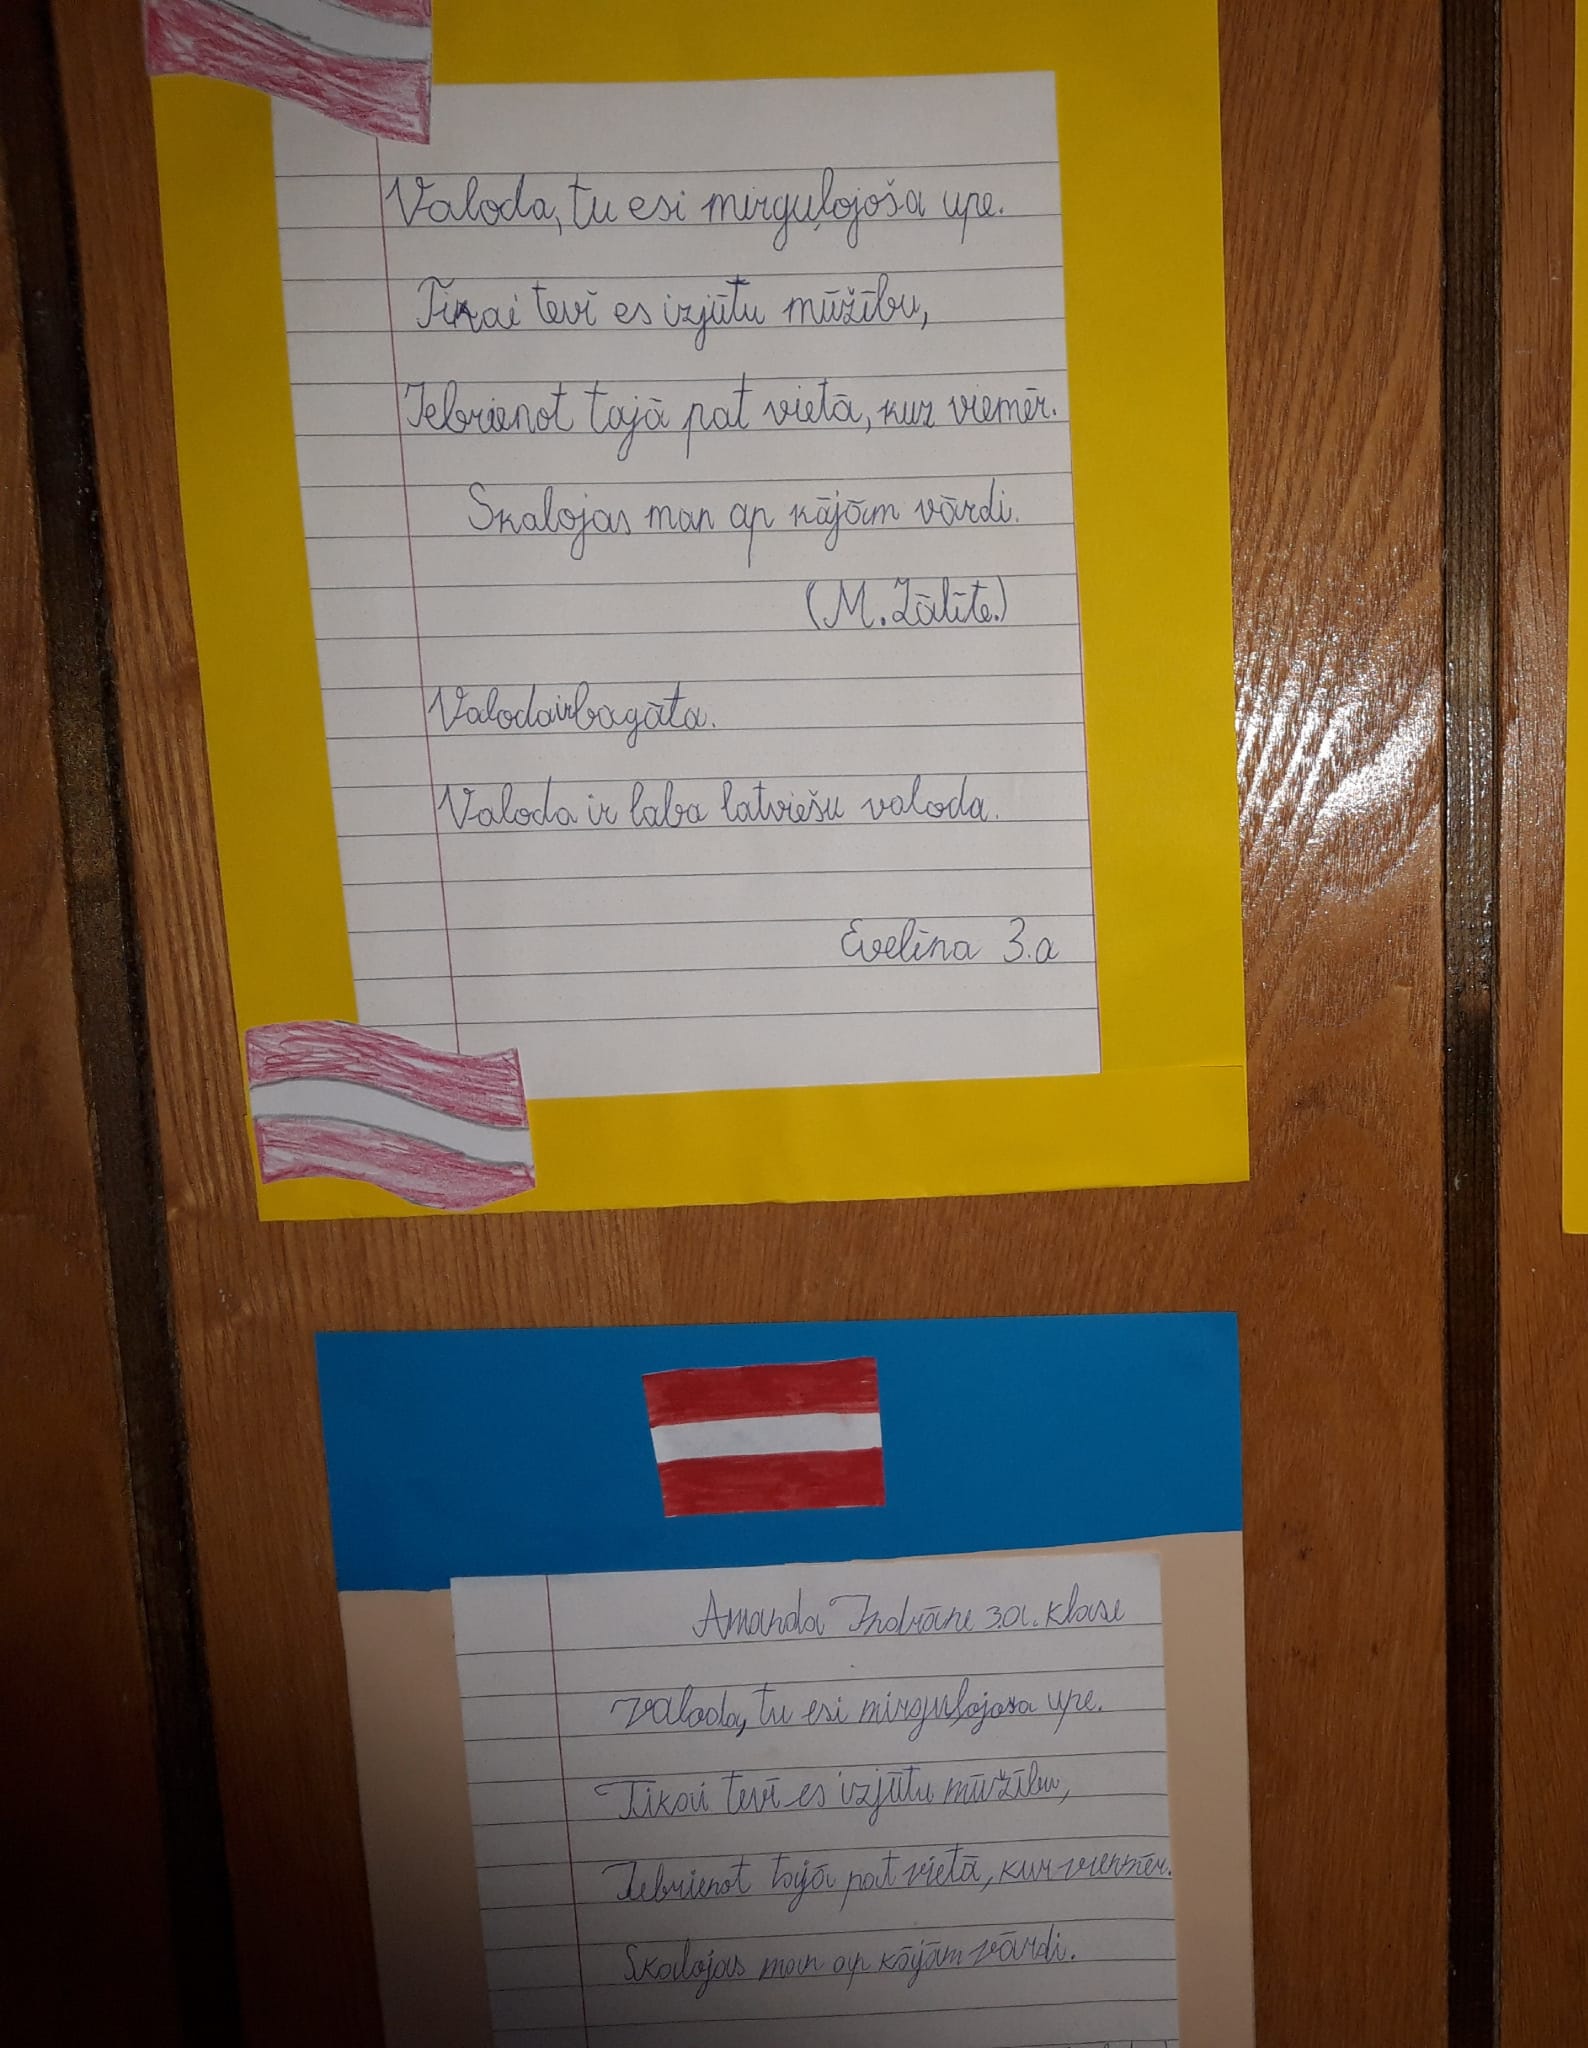 Valoda, tu esi mirguļojoša upe.
Tikai tevī es izjūtu mūžību,
Iebrienot tajā pat vietā, kur viemēr.
Skalojas man ap kājām vārdi.
(M. Zālīte.)
Valoda ir bagāta.
Valoda ir laba latviešu valoda.
Evelīna 3.a
Amanda Indrāne 3.a. klase
Valoda, tu esi mirguļojoša upe.
Tikai tevī es izjūtu mūžību,
Iebrienot tajā pat vietā, kur vienmēr.
Skalojas man ap kājām vārdi.